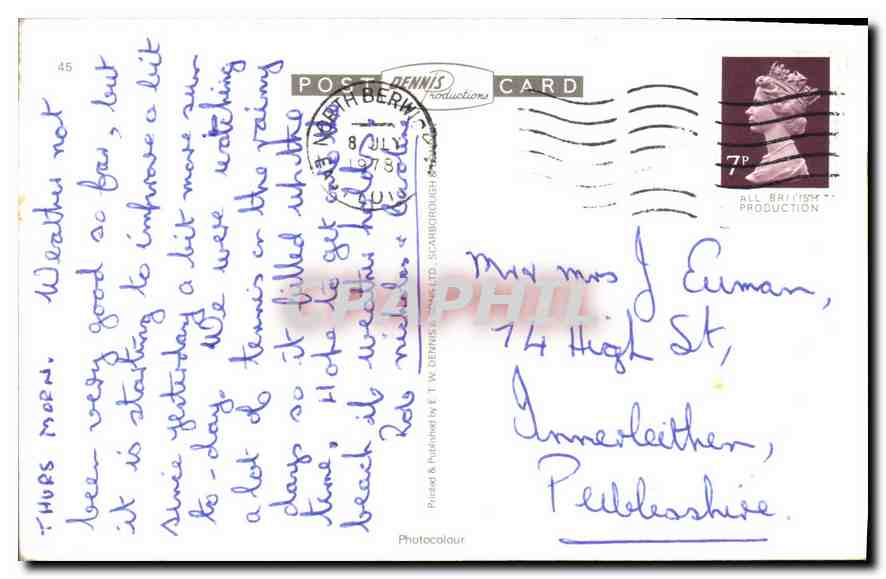 45
POST DENNIS Productions CARD
NORTH BERWICK
8 JLY
1978
7P
ALL BRITISH
PRODUCTION
THURS MORN. Weather not
been very good so far, but
it is starting to improve a bit
since yesterday a bit more sun
to-day. We were watching
a lot of tennis on the rainy
days so it filled up the
time. Hope to get on the
beach if weather holds.
Rob Nicholas & Caroline
Mr & Mrs J Euman,
74 High St,
Innerleithen,
Peeblesshire.
Printed & Published by E. T. W. DENNIS & SONS LTD., SCARBOROUGH &
Photocolour
CPAPHIL